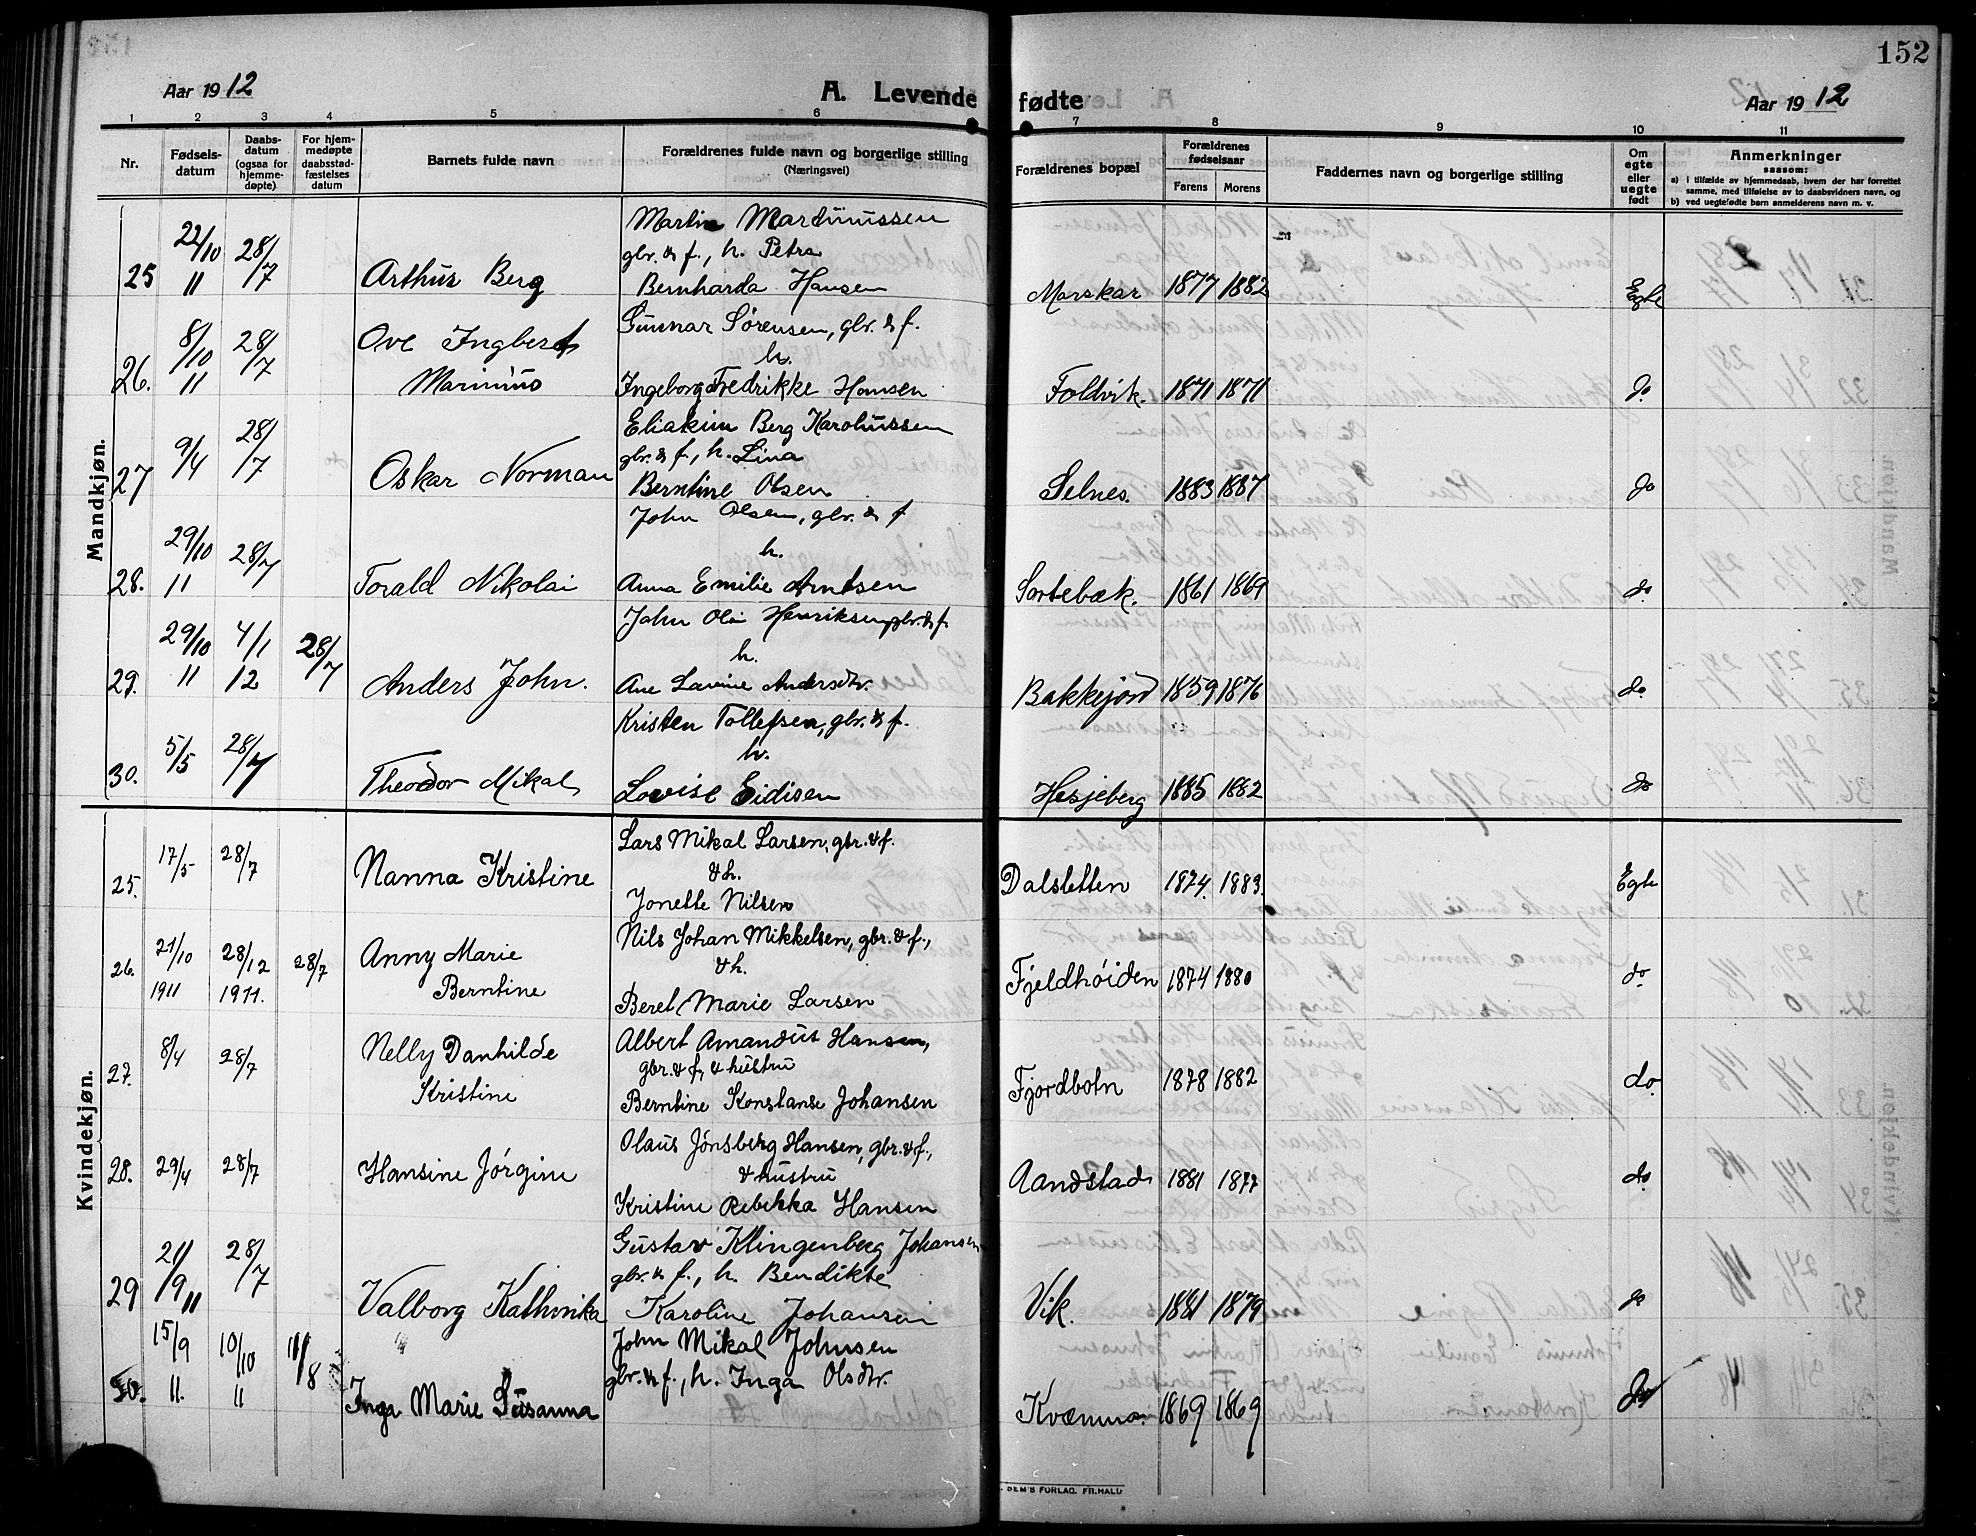 152
Aar 1912
A. Levende fødte
Aar 1912
1 2 3 4 5 6 7 8 9 10 11
Nr.
Fødsels-
datum
Daabs-
datum
(ogsaa for
hjemme-
døpte)
For hjem-
medøpte
daabsstad-
fæstelses
datum
Barnets fulde navn
Forældrenes fulde navn og borgerlige stilling
(Næringsvei)
Forældrenes bopæl
Forældrenes
fødselsaar
Farens Morens
Faddernes navn og borgerlige stilling
Om
egte
eller
uegte
født
Anmerkninger
saasom:
a) i tilfælde av hjemmedaab, hvem der har forrettet
samme, med tilføielse av to daabsvidners navn, og
b) ved uegtefødte barn anmelderens navn m. v.
Mandkjøn.
25 22/10 11 28/7 Arthur Berg
Martin Martinussen
gbr. & f., h. Petra
Bernharda Hansen
Marskar 1877 1882 Egte
26. 8/10 11 28/7 Ove Ingbert
Marinius
Gunnar Sørensen, gbr. & f.
h.
Ingeborg Fredrikke Hansen
Foldvik. 1871 1871 do
27 9/4 28/7 Oskar Norman
Eliakim Berg Karolussen
gbr. & f., h. Lina
Berntine Olsen
Selnes. 1883 1887 do
28. 29/10 11 28/7 Torald Nikolai
John Olsen, gbr. & f
h.
Anna Emilie Arntsen
Sortebæk. 1861 1869 do
29. 29/10 11 4/1 12 28/7 Anders John.
John Olai Henriksen gbr. & f.
h.
Ane Lavine Andersdtr.
Bakkejord 1859 1876 do
30. 5/5 28/7 Theodor Mikal
Kristen Tollefsen, gbr. & f.
h.
Lovise Eidisen
Hesjeberg 1885 1882 do
Kvindekjøn.
25. 17/5 28/7 Nanna Kristine
Lars Mikal Larsen, gbr. & f.
& h.
Jonette Nilsen
Dalsletten 1874. 1883. Egte
26. 21/10 1911 28/12 1911. 28/7 Anny Marie
Berntine
Nils Johan Mikkelsen, gbr. & f.,
& h.
Beret Marie Larsen
Fjeldhøiden 1874 1880 do
27. 8/4 28/7 Nelly Danhilde
Kristine
Albert Amandus Hansen,
gbr. & f, & hustru
Berntine Konstanse Johansen
Fjordbotn 1878 1882 do
28. 29/4 28/7 Hansine Jørgine
Olaus Jønsberg Hansen, gbr. & f.,
& hustru
Kristine Rebekka Hansen
Aandstad 1881 1877 do
29 21/9 11 28/7 Valborg Kathinka
Gustav Klingenberg Johansen
gbr. & f., h. Bendikte
Karoline Johansen
Vik. 1881 1879 do
30. 15/9 11. 10/10 11 11/8 Inga Marie Susanna
John Mikal Johnsen
gbr. & f., h. Inga Olsdtr.
Kvænmo. 1869 1869 do
SEM'S FORLAG. FR.HALD